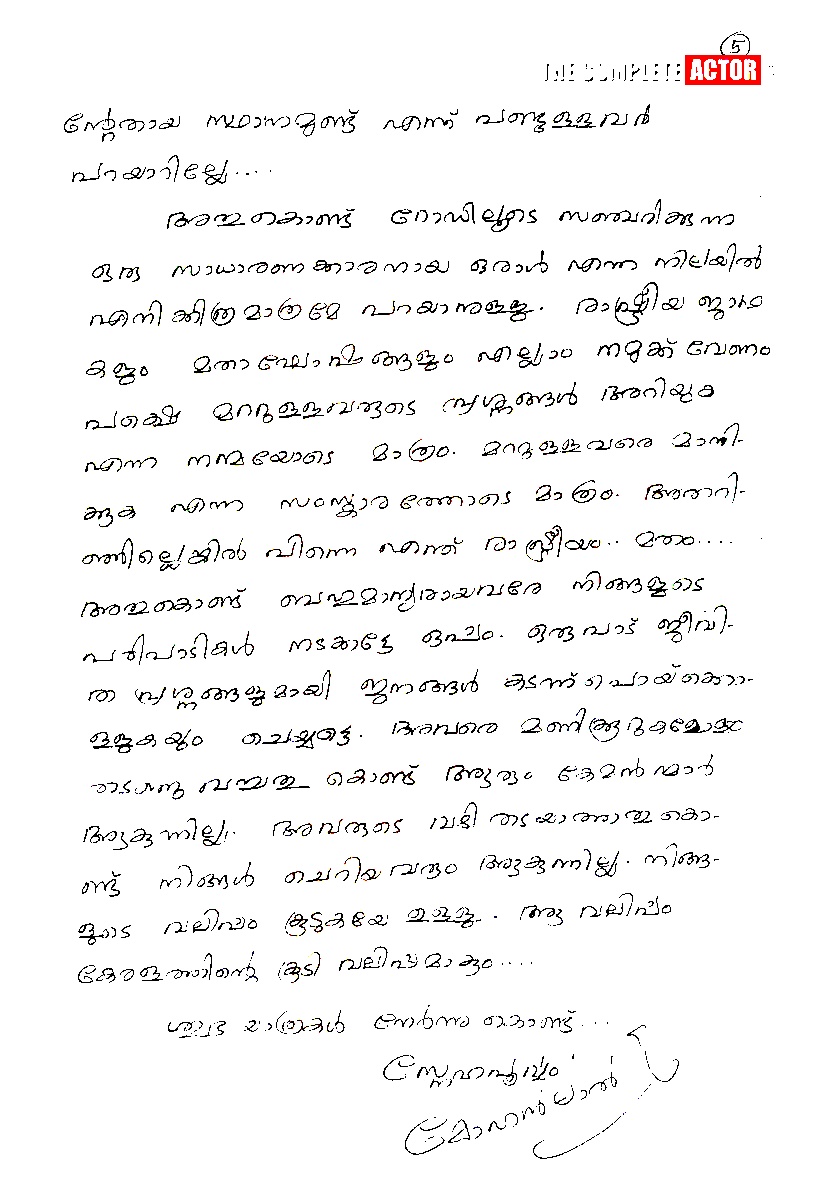 5
THE COMPLETE ACTOR
ന്റേതായ സ്ഥാനമുണ്ട് എന്ന് പണ്ടുള്ളവർ
പറയാറില്ലേ....
അതുകൊണ്ട് റോഡിലൂടെ സഞ്ചരിക്കുന്ന
ഒരു സാധാരണക്കാരനായ ഒരാൾ എന്ന നിലയിൽ
എനിക്കിത്രമാത്രമേ പറയാനുള്ളൂ. രാഷ്ട്രീയ ജാഥ
കളും മതാഘോഷങ്ങളും എല്ലാം നമുക്ക് വേണം
പക്ഷെ മറ്റുള്ളവരുടെ പ്രശ്നങ്ങൾ അറിയുക
എന്ന നന്മയോടെ മാത്രം. മറ്റുള്ളവരെ മാനി-
ക്കുക എന്ന സംസ്കാരത്തോടെ മാത്രം. അതറി-
ഞ്ഞില്ലെങ്കിൽ പിന്നെ എന്ത് രാഷ്ട്രീയം.. മതം....
അതുകൊണ്ട് ബഹുമാന്യരായവരേ നിങ്ങളുടെ
പരിപാടികൾ നടക്കട്ടേ ഒപ്പം. ഒരുപാട് ജീവി-
ത പ്രശ്നങ്ങളുമായി ജനങ്ങൾ കടന്ന് പൊയ്ക്കൊ-
ള്ളുകയും ചെയ്യട്ടെ. അവരെ മണിക്കൂറുകളോളം
തടഞ്ഞു വച്ചതു കൊണ്ട് ആരും കേമൻമാർ
ആകുന്നില്ല. അവരുടെ വഴി തടയാത്തതു കൊ-
ണ്ട് നിങ്ങൾ ചെറിയവരും ആകുന്നില്ല. നിങ്ങ-
ളുടെ വലിപ്പം കൂടുകയേ ഉള്ളൂ. ആ വലിപ്പം
കേരളത്തിന്റെ കൂടി വലിപ്പമാകും....
ശുഭ യാത്രകൾ നേർന്നു കൊണ്ട്...
സ്നേഹപൂർവ്വം
മോഹൻലാൽ